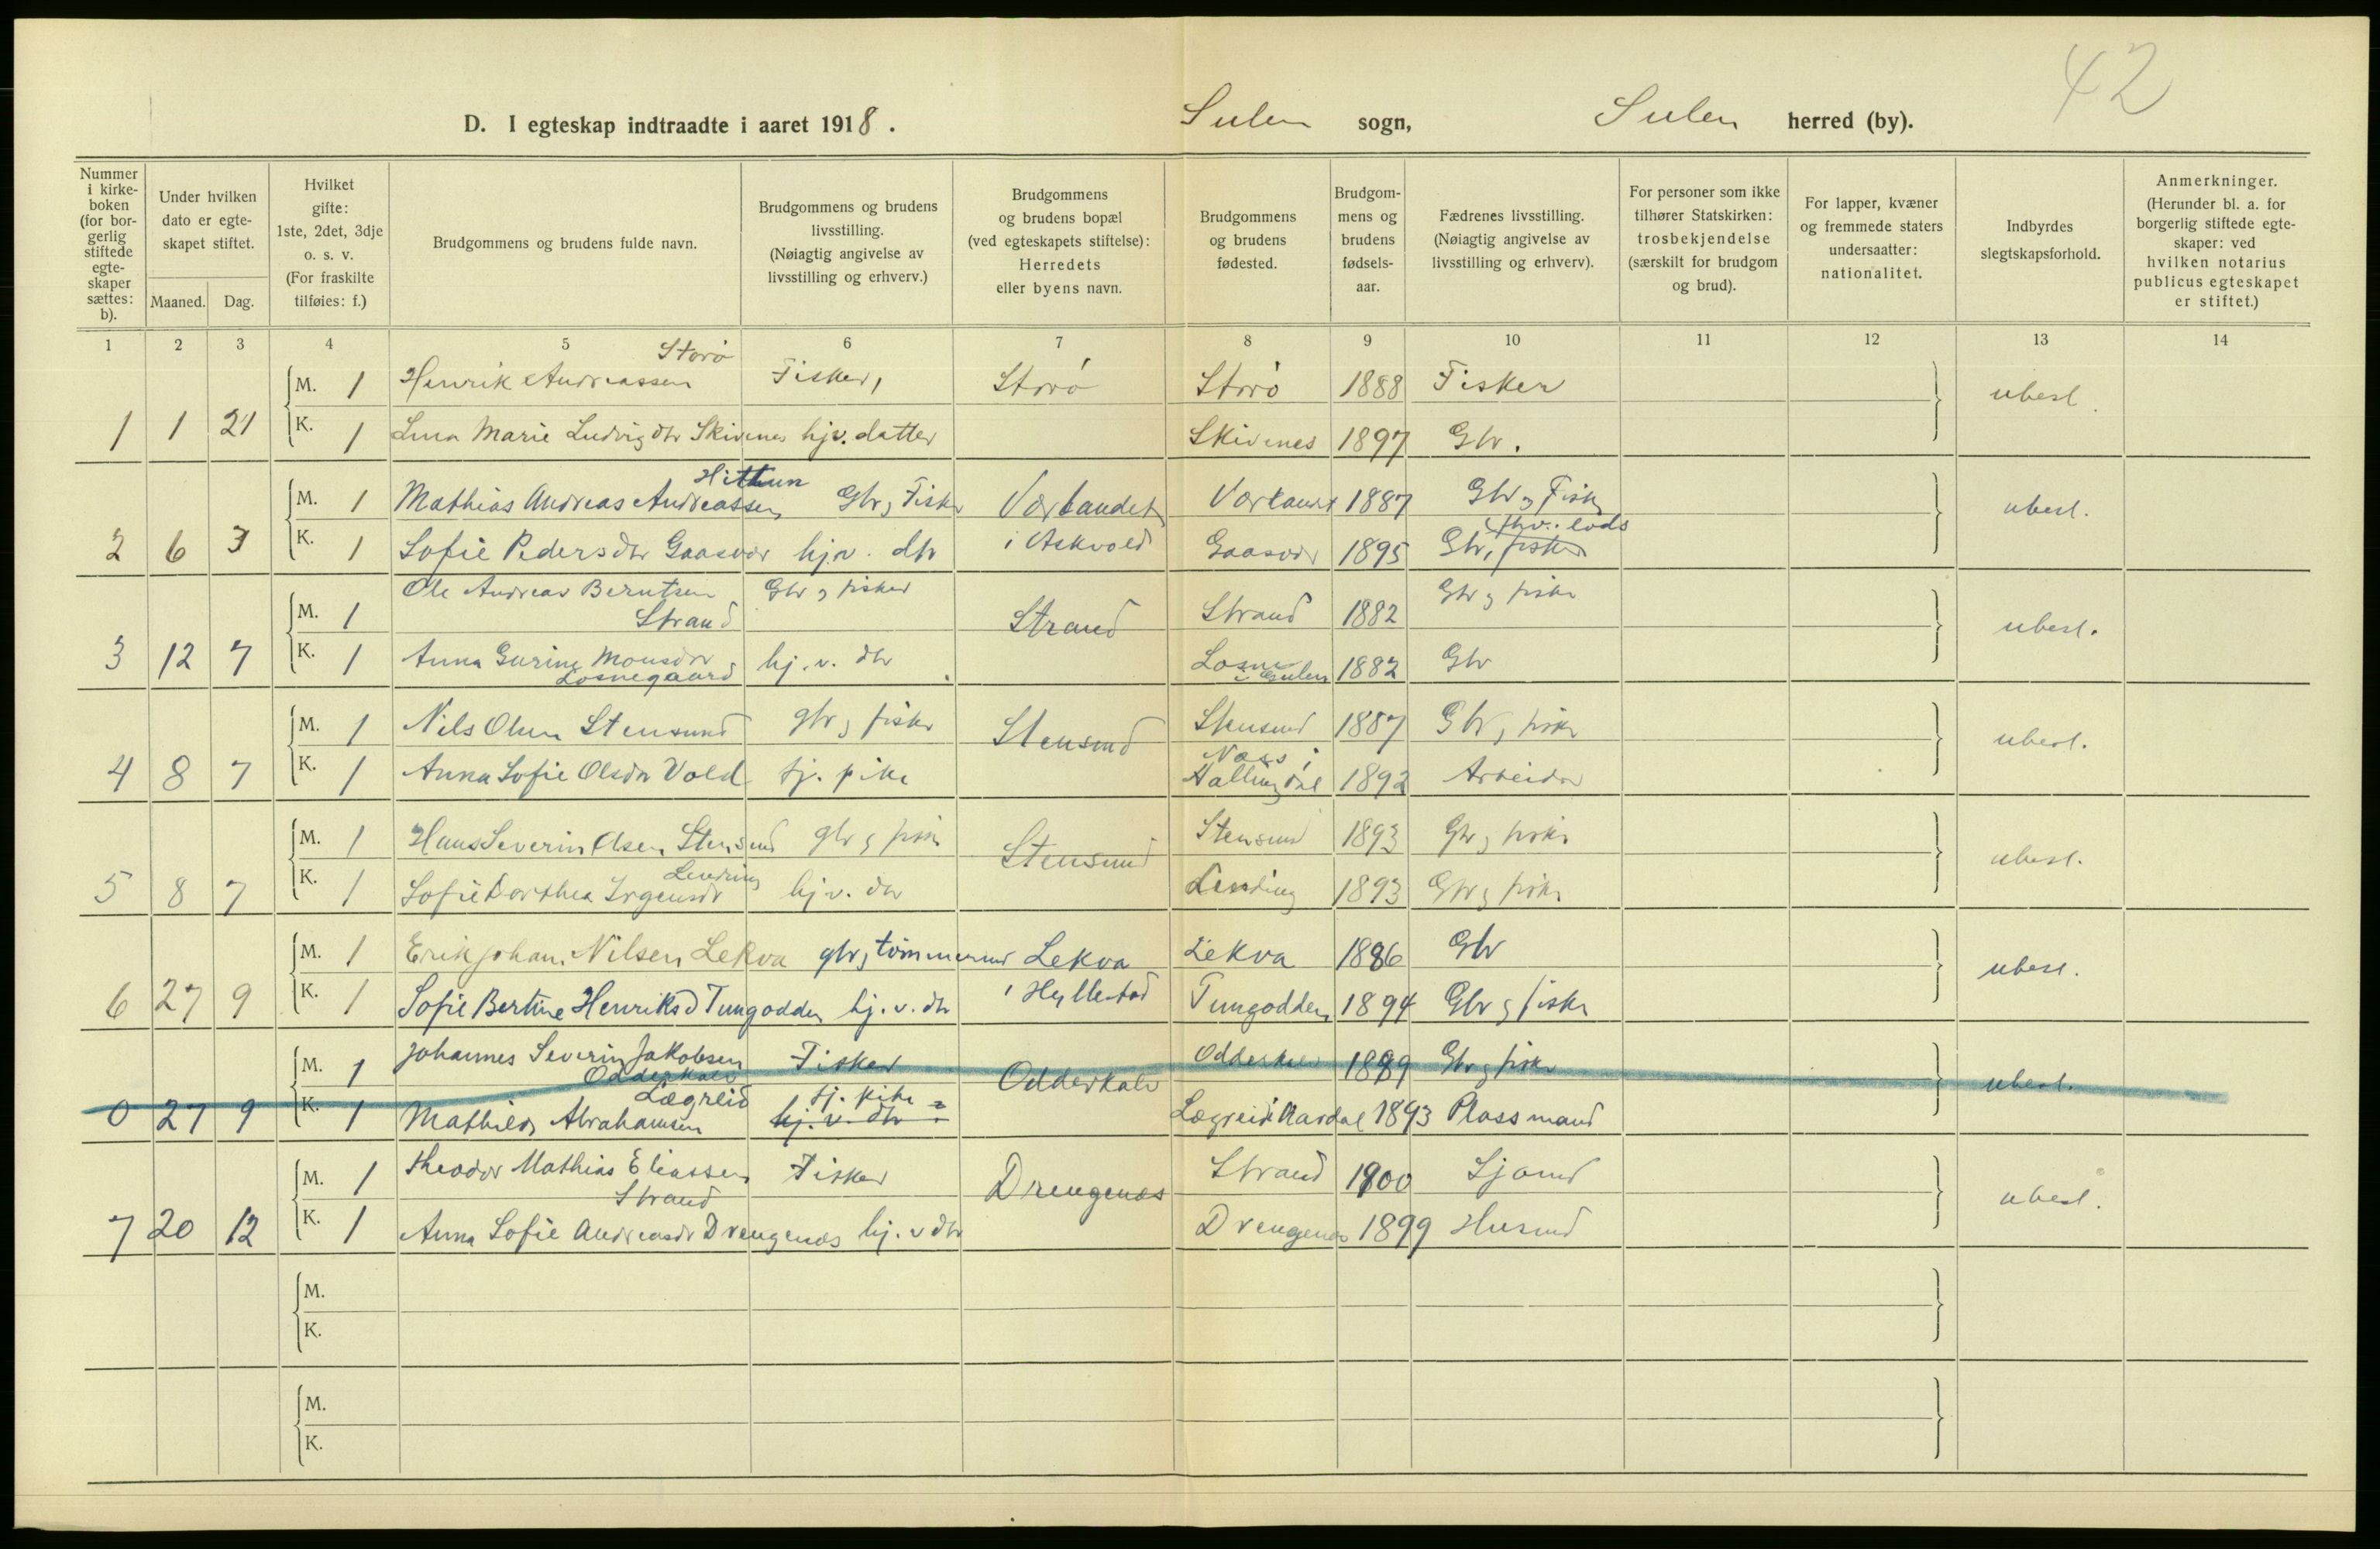 42
D. I egteskap indtraadte i aaret 1918. Sulen sogn, Sulen herred (by).
Nummer i kirke-boken (for bor-gerlig stiftede egte-skaper sættes: b).
Under hvilken dato er egte-skapet stiftet.
Maaned. Dag.
Hvilket gifte: 1ste, 2det, 3dje o. s. v. (For fraskilte tilføies: f.)
Brudgommens og brudens fulde navn.
Brudgommens og brudens livsstilling. (Nøiagtig angivelse av livsstilling og erhverv.)
Brudgommens og brudens bopæl (ved egteskapets stiftelse): Herredets eller byens navn.
Brudgommens og brudens fødested.
Brudgom-mens og brudens fødsels-aar.
Fædrenes livsstilling. (Nøiagtig angivelse av livsstilling og erhverv).
For personer som ikke tilhører Statskirken: trosbekjendelse (særskilt for brudgom og brud).
For lapper, kvæner og fremmede staters undersaatter: nationalitet.
Indbyrdes slegtskapsforhold.
Anmerkninger. (Herunder bl. a. for borgerlig stiftede egte-skaper: ved hvilken notarius publicus egteskapet er stiftet.)
1 2 3 4 5 6 7 8 9 10 11 12 13 14
Storö
M. 1 Henrik Andreassen Fisker, Storö Storö 1888 Fisker ubesl.
1 1 21 K. 1 Lina Marie Ludvigdtr Skivenes hjv. datter Skivenes 1897 Gbr.
Hittun
M. 1 Mathias Andreas Andreassen Gbr, Fisker Værlandet Værlandet 1887 Gbr, Fisker ubesl.
fhv. lods
2 6 3 K. 1 Sofie Pedersdtr Gaasvær hjv. dtr i Askvold Gaasvær 1895 Gbr, fisker
Ole Andreas Berntsen Gbr, fisker Gbr, fisker
M. 1 Strand Strand Strand 1882 ubesl.
3 12 7 K. 1 Anna Gurine Monsdtr hj. v. dtr Losne 1882 Gbr
Losnegaard i Gulen
M. 1 Nils Olsen Stensund gbr, fisker Stensund Stensund 1887 Gbr, fisker ubesl.
Næss i
4 8 7 K. 1 Anna Sofie Olsdtr Vold tj. pike Hallingdal 1892 Arbeider
M. 1 Hans Severin Olsen Stensund gbr, fisker Stensund Stensund 1893 Gbr, fisker ubesl.
Lending
5 8 7 K. 1 Sofie Dorthea Irgensdr hj. v. dtr Lending 1893 Gbr, fisker
M. 1 Erik Johan Nilsen Lekva gbr, tömmermd Lekva Lekva 1886 Gbr ubesl.
6 27 9 K. 1 Sofie Bertine Henriksd Tungodden hj. v. dtr i Hyllestad Tungodden 1894 Gbr, fisker
Johannes Severin Jakobsen
M. 1 Odderkalv Fisker Odderkalv Odderkalv 1889 Gbr, fisker ubesl.
Lægreid tj. pike
0 27 9 K. 1 Mathilde Abrahamsen hj. v. dtr Lægreid i Aardal 1893 Plassmand
M. 1 Theodor Mathias Eliassen Fisker Drengenes Strand 1900 Sjømd ubesl.
Strand
7 20 12 K. 1 Anna Sofie Andreasdr Drengenes hj. v dtr Drengenes 1899 Husmd
M.
K.
M.
K.